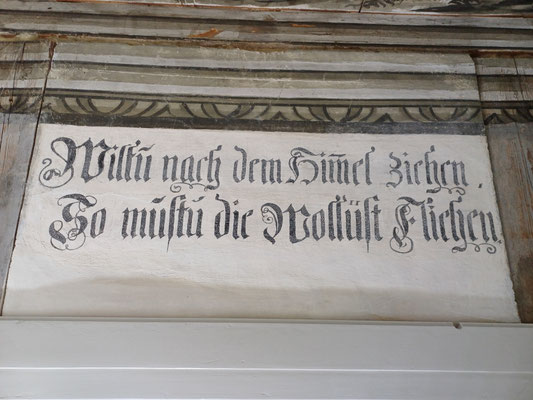 Wiltu nach dem Him̄el ziehen,
So mustu die Wollüst Fliehen.